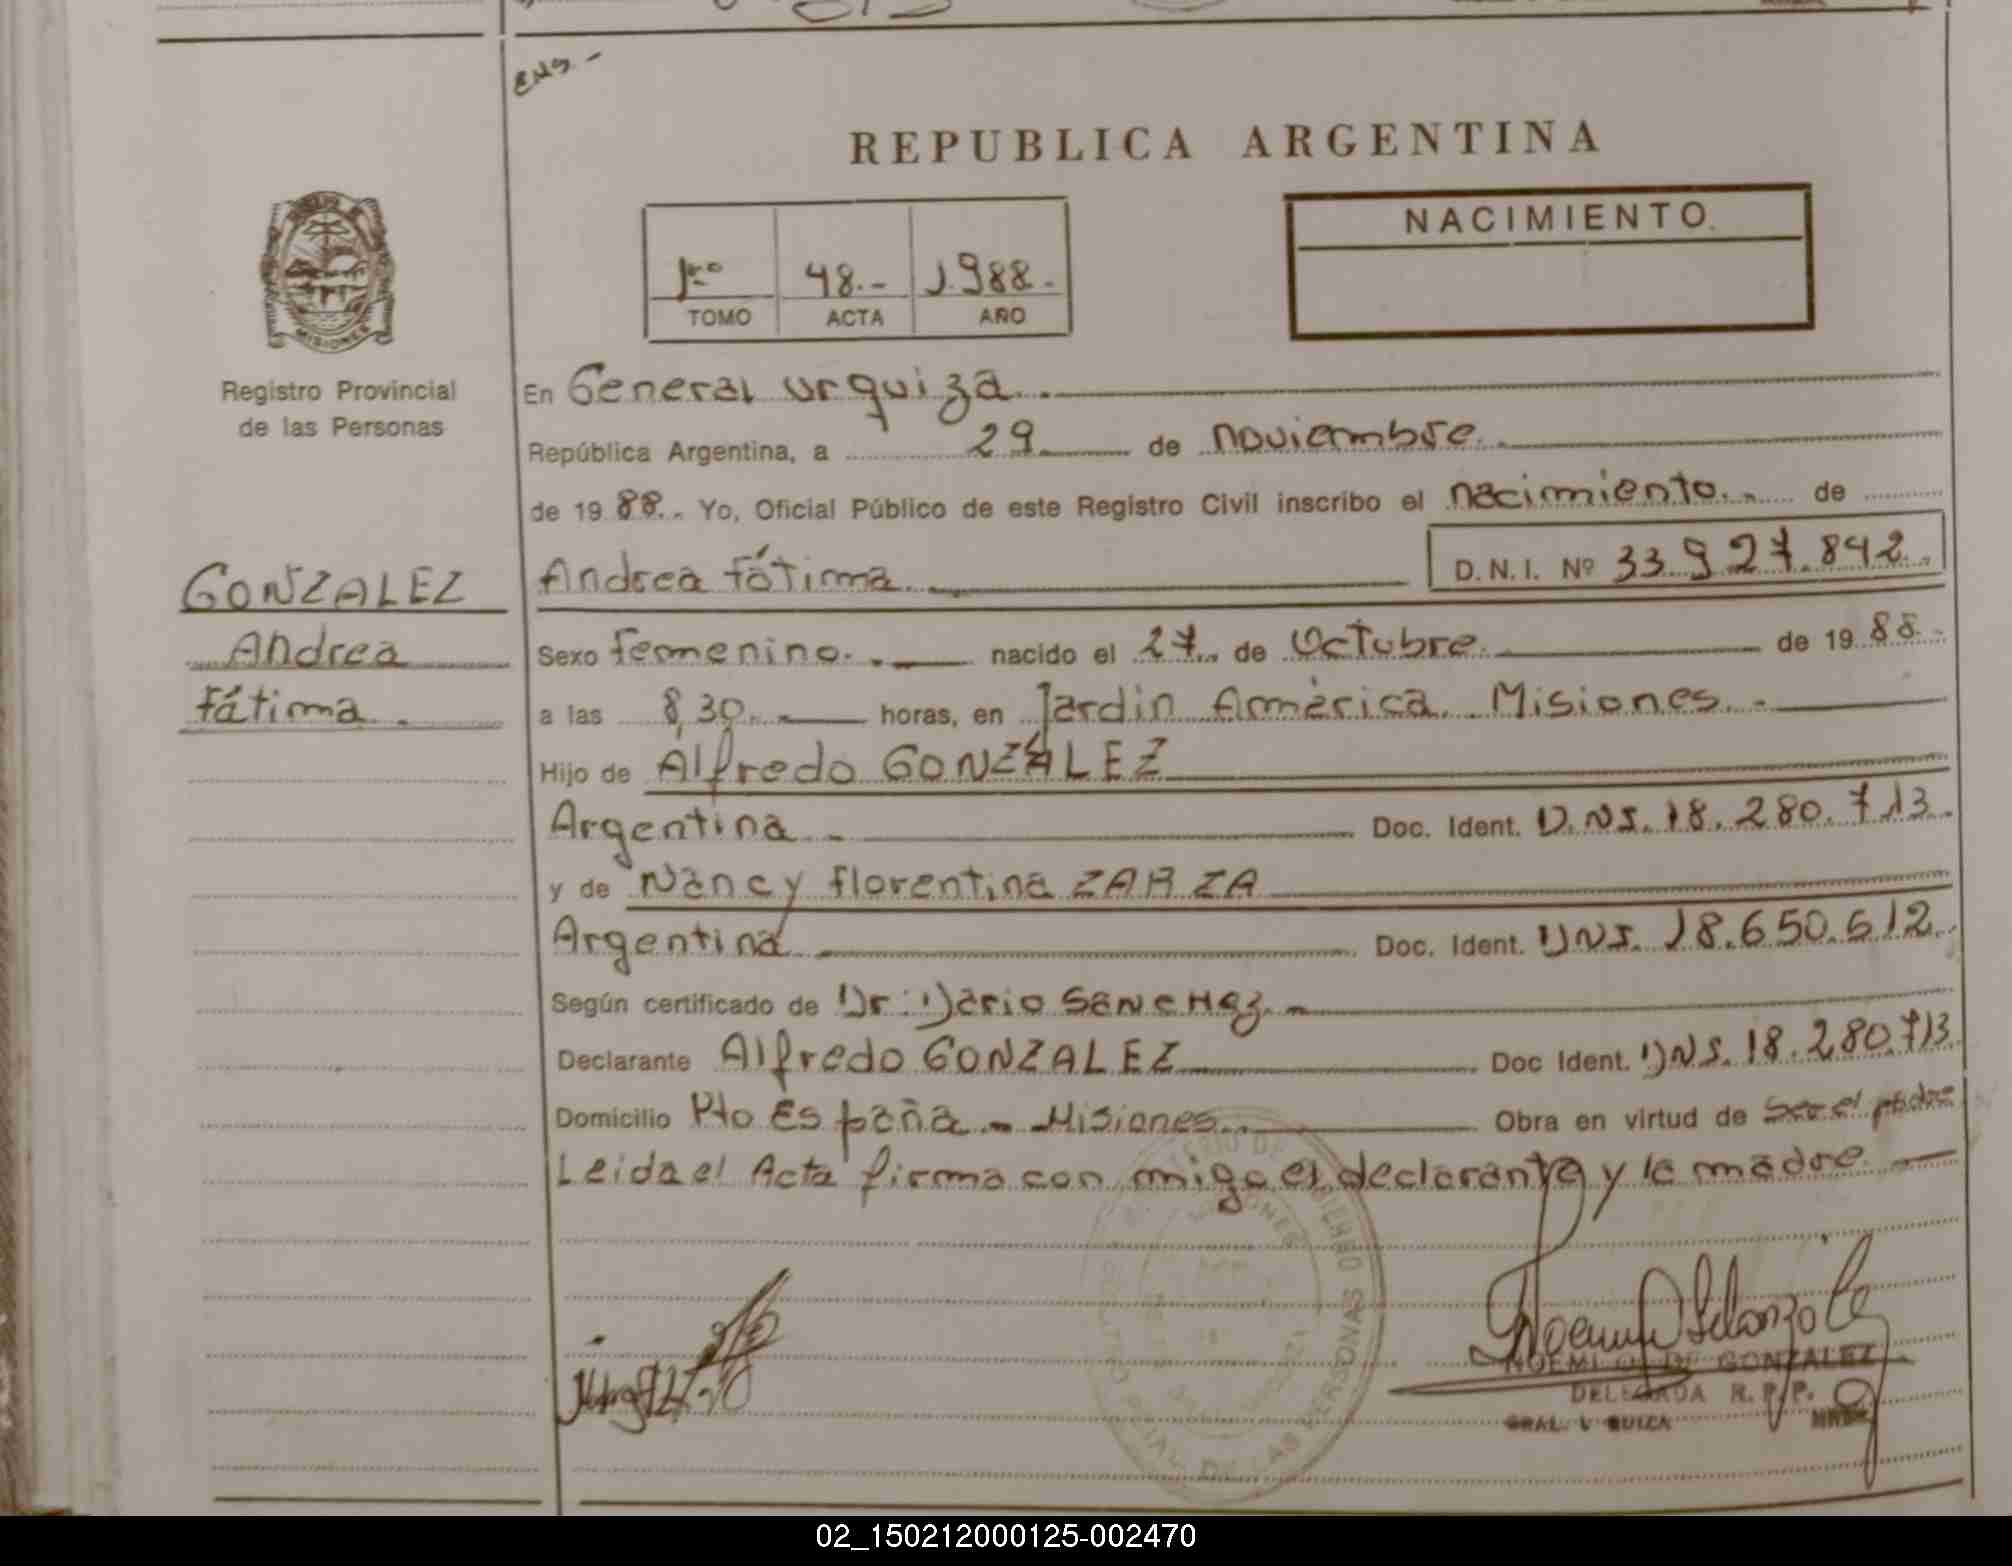 ENS.-
REPUBLICA ARGENTINA
NACIMIENTO.
1ro 48.- 1.988.-
TOMO ACTA AÑO
MISIONES
Registro Provincial
de las Personas
En General urquiza.
República Argentina, a 29 de noviembre.
de 19 88.. Yo, Oficial Público de este Registro Civil inscribo el nacimiento.. de
GONZALEZ
Andrea
fátima.
Andrea fátima. D.N.I. Nº 33.927.842.
Sexo femenino. nacido el 27. de Octubre. de 19 88.
a las 8,30. horas, en Jardin América. Misiones.-
Hijo de Alfredo GONZÁLEZ
Argentina.- Doc. Ident. D.NI. 18.280.713.
y de Nancy florentina ZARZA
Argentina. Doc. Ident. DNI. 18.650.612.
Según certificado de Dr: Dario Sanchez.-
Declarante Alfredo GONZALEZ Doc Ident. DNI. 18.280.713.
Domicilio Pto España.- Misiones.. Obra en virtud de Ser el padre
Leida el Acta firma con migo el declarante y la madre.-
NOEMI O. DE GONZALEZ
DELEGADA R. P. P.
GRAL. U QUIZA MNES
DE LAS PERSONAS
02_150212000125-002470